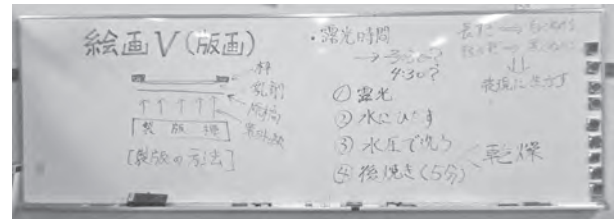 絵画Ⅴ(版画)
枠
乳剤
原稿
紫外線
製版機
[製版の方法]
・露光時間
→ 3:30?
4:30?
① 露光
② 水にひたす
③ 水圧で洗う
④ 後焼き(5分)
乾燥